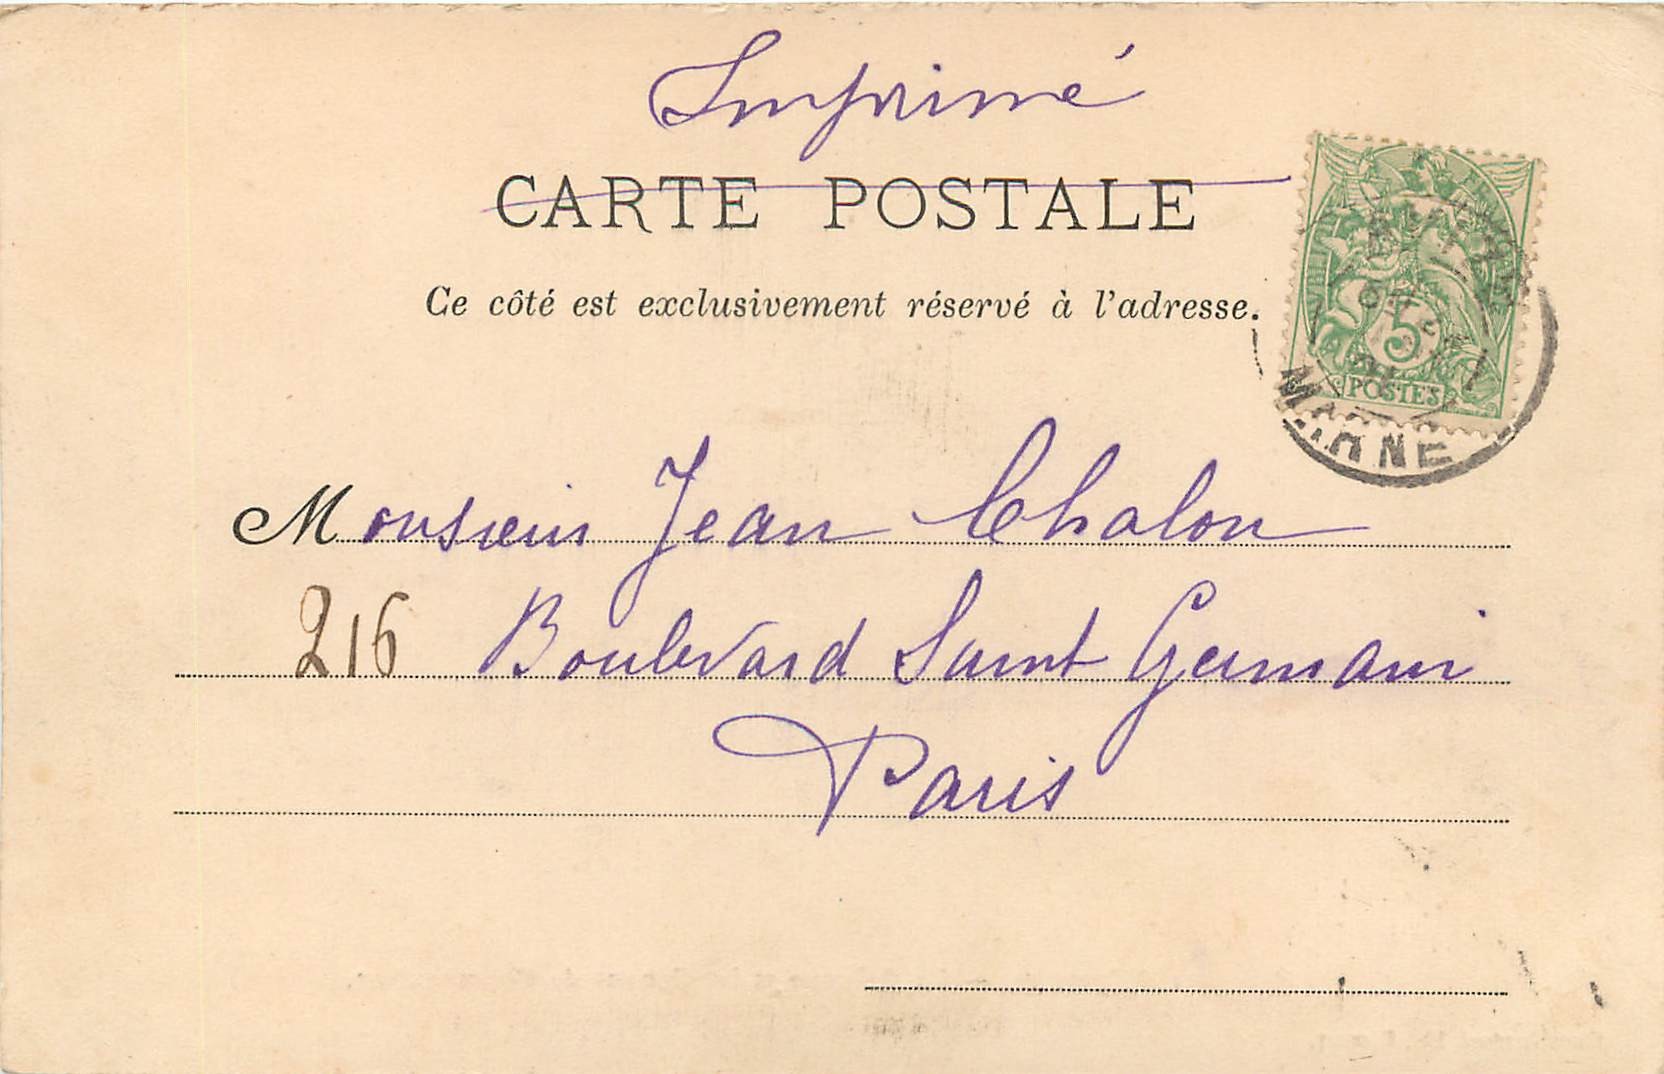 Imprimé
CARTE POSTALE
Ce côté est exclusivement réservé à l'adresse.
5
POSTES
MARNE
Monsieur Jean Chalon
216 Boulevard Saint Germain
Paris